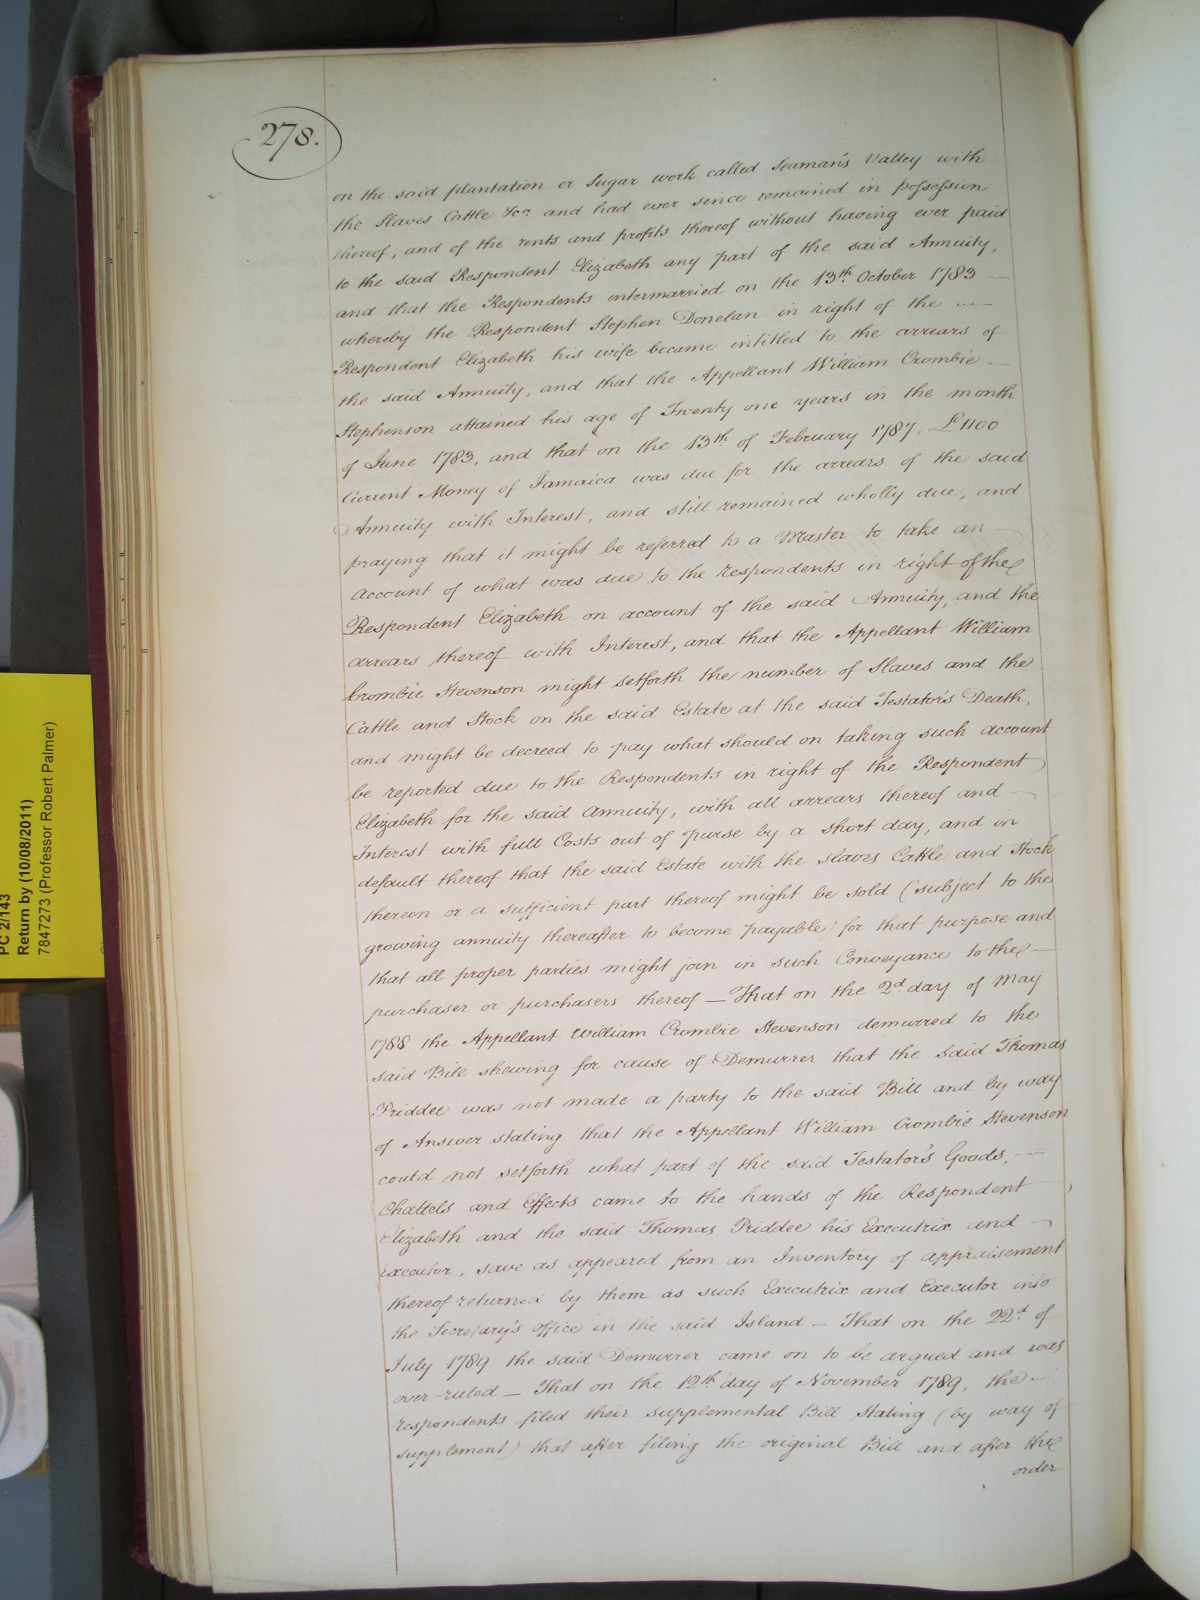 278.
on the said plantation or Sugar work called Seaman's Valley with
the Slaves Cattle &ca. and had ever since remained in possession
thereof, and of the rents and profits thereof without having ever paid
to the said Respondent Elizabeth any part of the said Annuity,
and that the Respondents intermarried on the 13th. October 1783
whereby the Respondent Stephen Donelan in right of the
Respondent Elizabeth his wife became intitled to the arrears of
the said Annuity, and that the Appellant William Crombie
Stephenson attained his age of Twenty one years in the month
of June 1783, and that on the 13th of February 1787, £1100
Current Money of Jamaica was due for the arrears of the said
Annuity with Interest, and still remained wholly due, and
praying that it might be referred to a Master to take an
account of what was due to the respondents in right of the
Respondent Elizabeth on account of the said Annuity, and the
arrears thereof with Interest, and that the Appellant William
Crombie Stevenson might setforth the number of Slaves and the
Cattle and Stock on the said Estate at the said Testator's Death,
and might be decreed to pay what should on taking such account
be reported due to the Respondents in right of the Respondent
Elizabeth for the said annuity, with all arrears thereof and
Interest with full Costs out of purse by a short day, and in
default thereof that the said Estate with the slaves Cattle and Stock
thereon or a sufficient part thereof might be sold (subject to the
growing annuity thereafter to become payable) for that purpose and
that all proper parties might join in such Conveyance to the
purchaser or purchasers thereof — That on the 2d. day of May
1788 the Appellant William Crombie Stevenson demurred to the
said Bill shewing for cause of Demurrer that the said Thomas
Priddee was not made a party to the said Bill and by way
of Answer stating that the Appellant William Crombie Stevenson
could not setforth what part of the said Testator's Goods,
Chattels and Effects came to the hands of the Respondent
Elizabeth and the said Thomas Priddee his Executrix and
executor, save as appeared from an Inventory of appraisement
thereof returned by them as such Executrix and Executor into
the Secretary's office in the said Island — That on the 22d. of
July 1789 the said Demurrer came on to be argued and was
over-ruled — That on the 12th. day of November 1789, the
respondents filed their supplemental Bill stating (by way of
supplement) that after filing the original Bill and after the
order
PC 2/143
Return by (10/08/2011)
7847273 (Professor Robert Palmer)